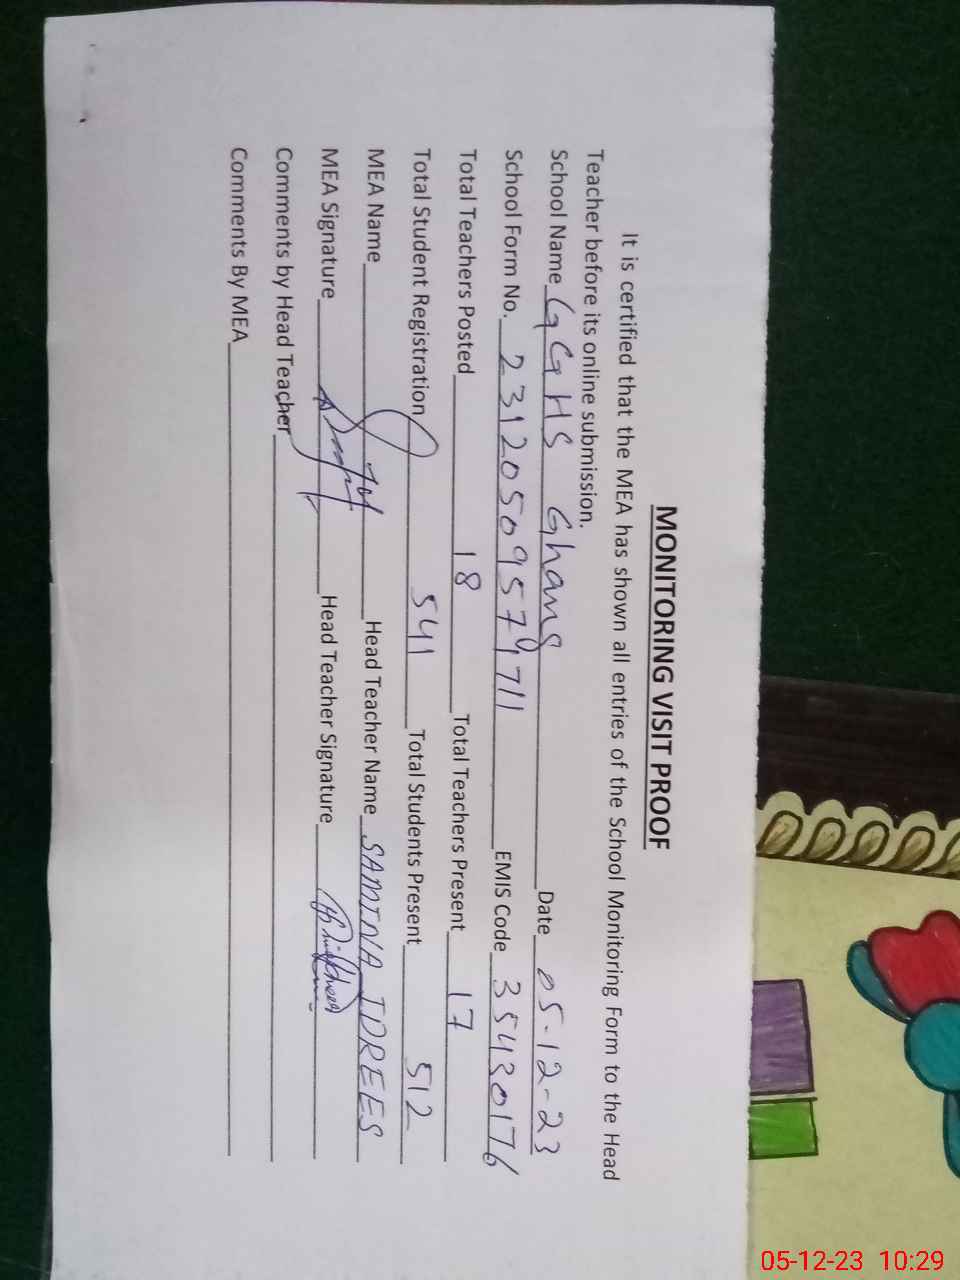 MONITORING VISIT PROOF
It is certified that the MEA has shown all entries of the School Monitoring Form to the Head
Teacher before its online submission.
School Name GGHS Ghang Date 05-12-23
School Form No. 23120509579711 EMIS Code 35430176
Total Teachers Posted 18 Total Teachers Present 17
Total Student Registration 541 Total Students Present 512
MEA Name Head Teacher Name SAMINA IDREES
MEA Signature Head Teacher Signature
Comments by Head Teacher
Comments By MEA
05-12-23 10:29